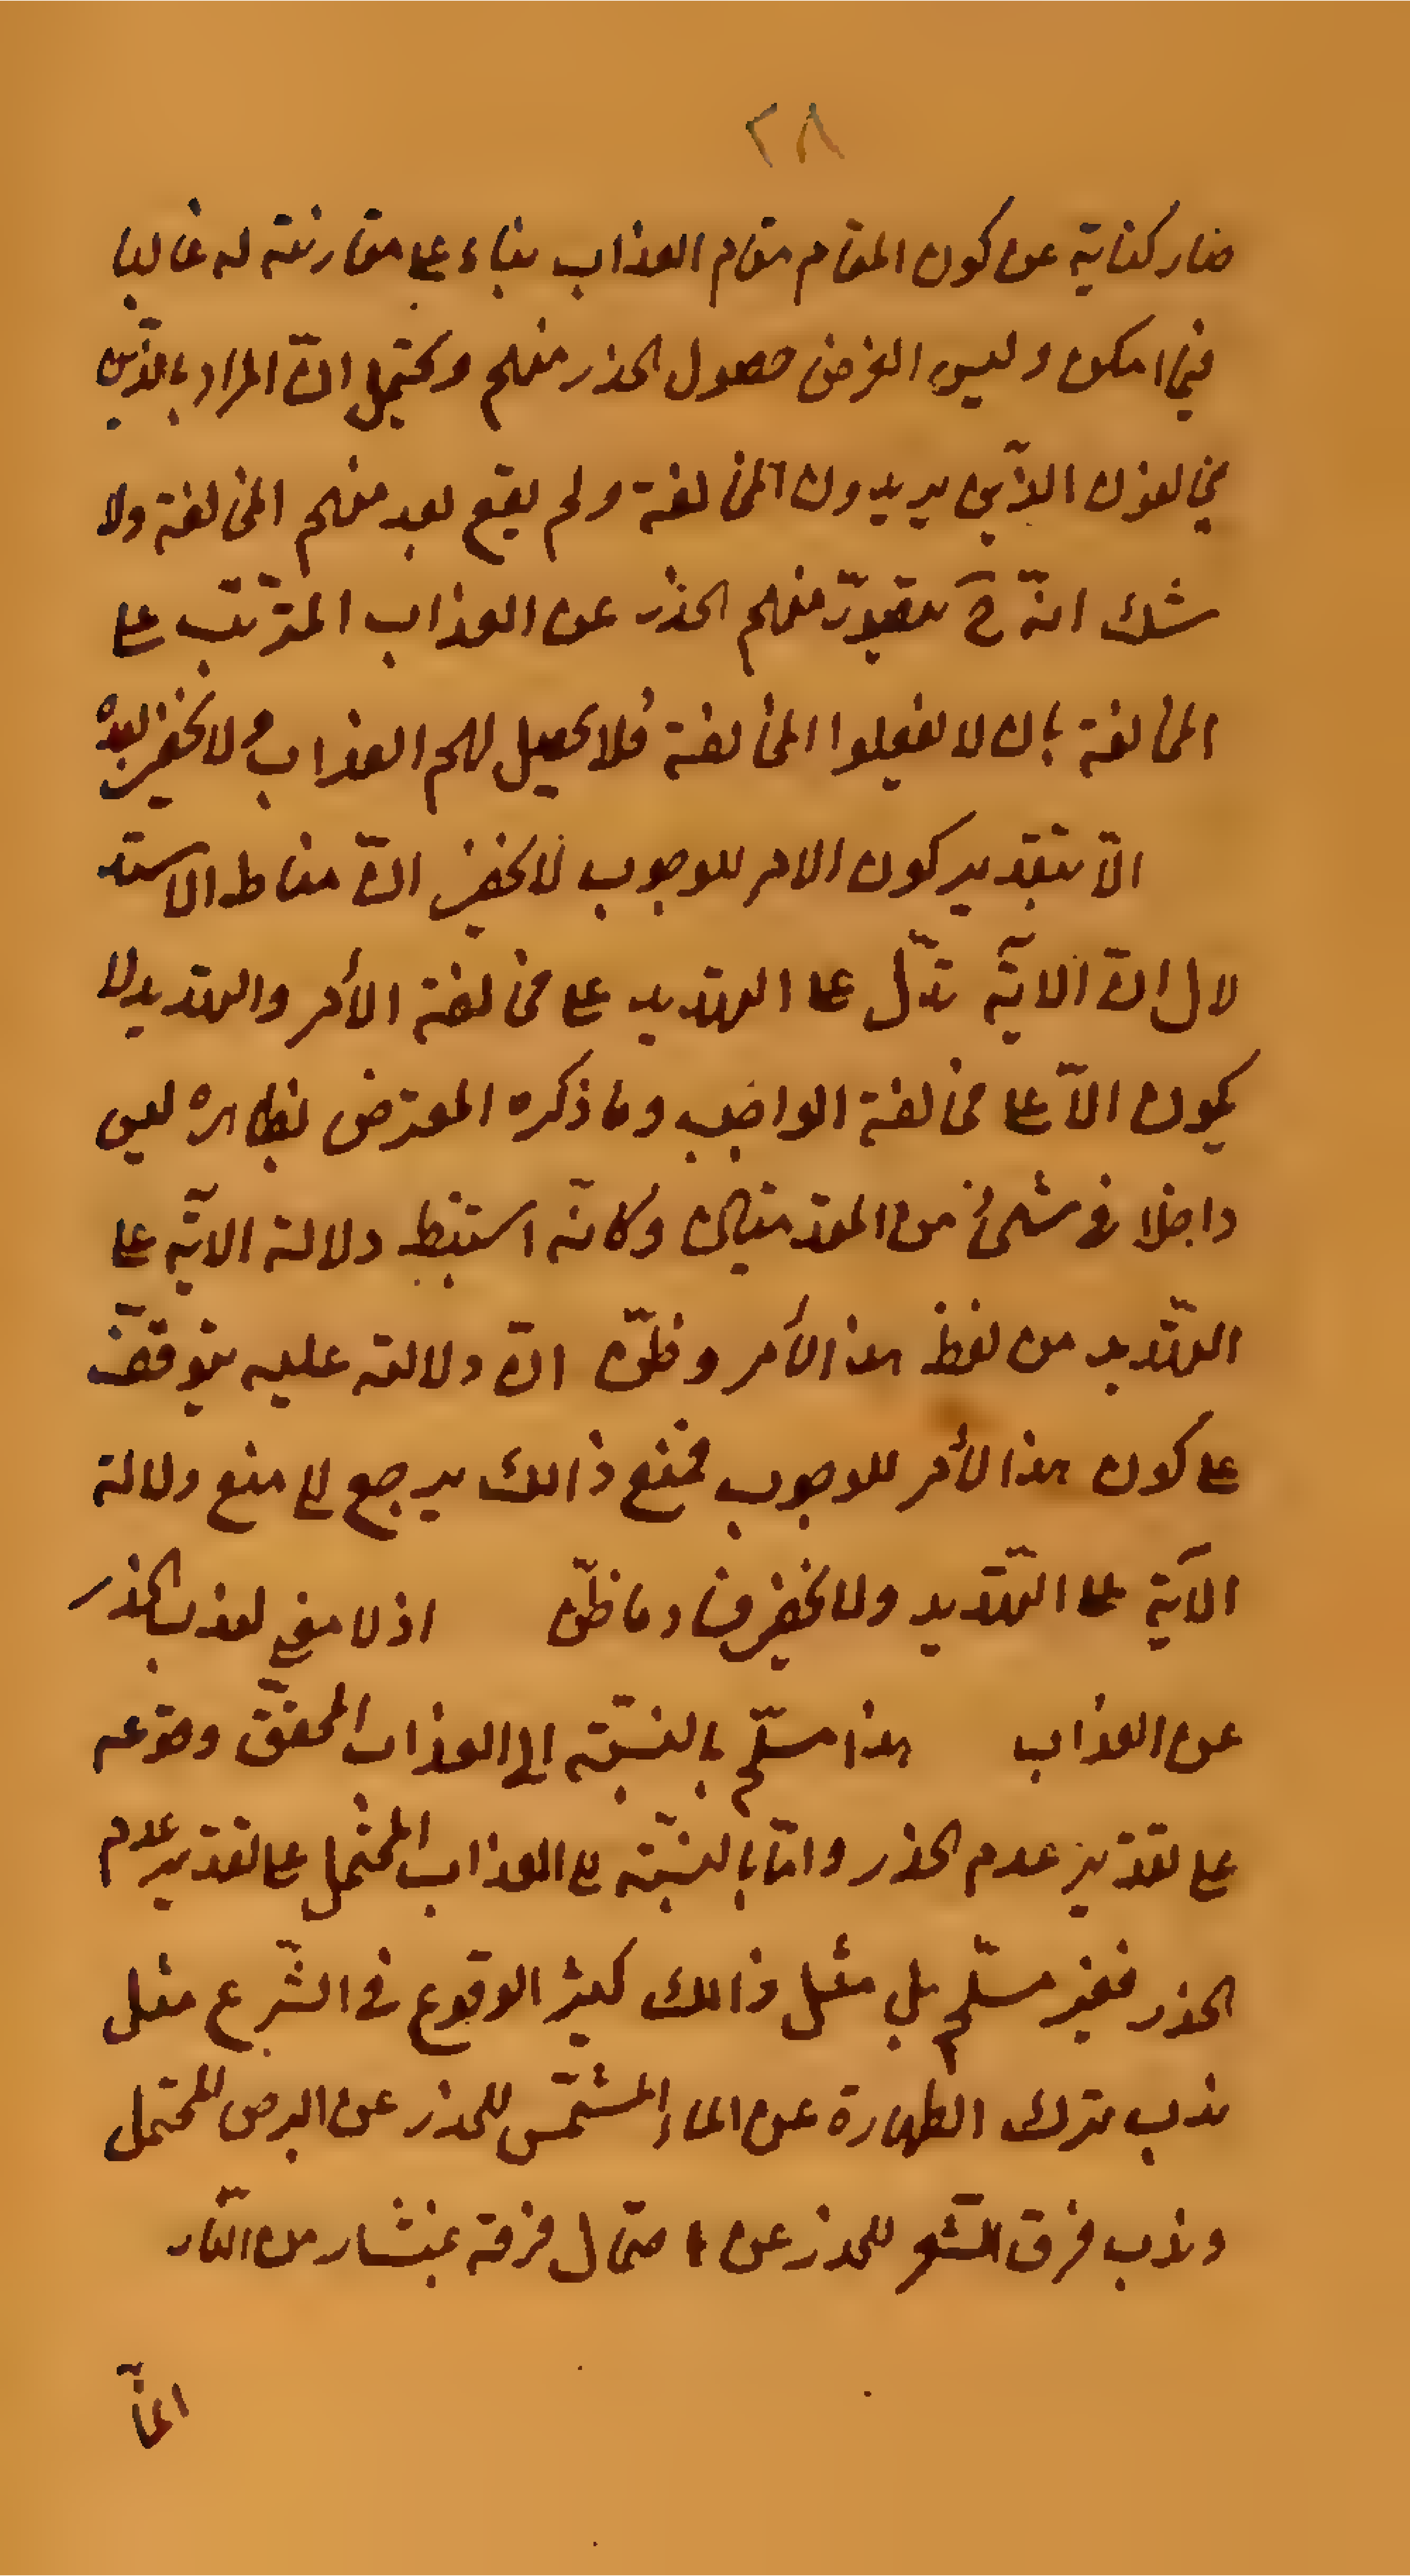 ٢٨
فصار كناية عن كون المقام مقام العذاب بناء على مقارنته له غالبا
فيما امكن وليس الغرض حصول الحذر منهم ويحتمل انّ المراد بالذّين
يخالفون الذّين يريدون المخالفة ولم يقع بعد منهم المخالفة ولا
شك انّه ح يتصوّر منهم الحذر عن العذاب المترتّب على
المخالفة بان لا يفعلوا المخالفة فلا يحصل لهم العذاب ولا يخفى بعده
الّا بتقدير كون الامر للوجوب لا يخفى انّ مناط الاستد
لال انّ الآية تدّل على التهديد على مخالفة الأمر والتهديد لا
يكون الّا على مخالفة الواجب وما ذكره المعترض بظاهره ليس
داخلا في شئ من المقدمتين وكانّه استنبط دلالة الآية على
التّهديد من لفظ هذا الأمر وظنّ انّ دلالته عليه يتوقّف
على كون هذا الأمر للوجوب فمنع ذالك يرجع الى منع دلالة
الآية على التّهديد ولا يخفى فساد ما ظنّ اذ لا معنى لندب الحذر
عن العذاب هذا مسلّم بالنسّبة الى العذاب المحقّق وقوعه
على تقدير عدم الحذر وامّا بالنسّبة الى العذاب المحتمل على تقدير عدم
الحذر فغير مسلّم بل مثل ذالك كثير الوقوع في الشّرع مثل
ندب ترك الطهارة عن الماء المشمّس للحذر عن البرص المحتمل
وندب فرق الشّعر للحذر عن احتمال فرقة بمنشار من النّار